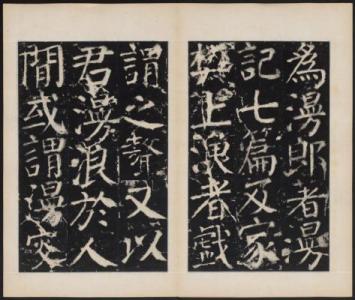 為漫郎著漫
記七篇及家
樊上漁者戲
謂之聱又以
君漫浪於人
間或謂漫叟